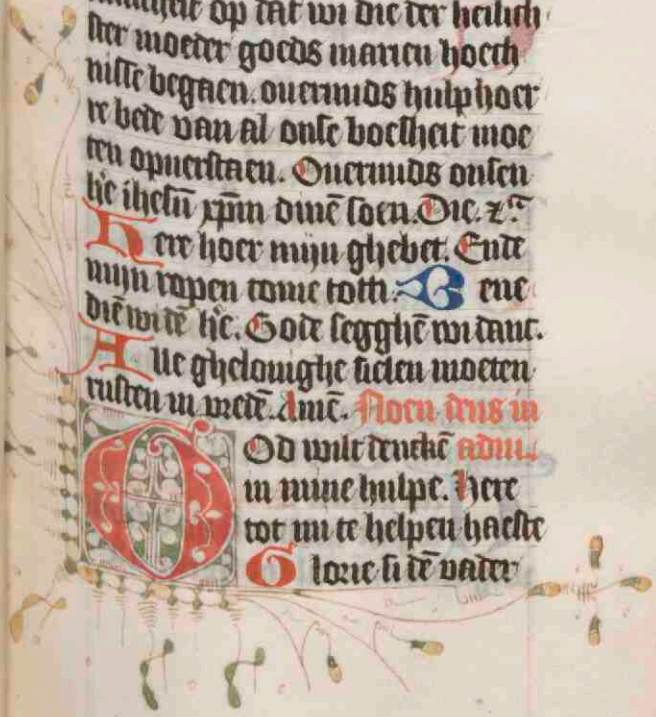 op dat wi die der heilich
ster moeder goeds marien hoech
nisse begaen. ouermids hulp hoer
re bede van al onse bosheit moe
ten opuerstaen. Ouermids onsen
h̄e ihesū xp̄m dinē soen. Die. ⁊c̄.
Here hoer mijn ghebet. Ende
mijn ropen come toti. Bene
diē wi dē h̄e. Gode segghē wi danc.
Alle ghelouighe sielen moeten
rusten in vredē. Amē. Noen deus in
God wilt dencke͂ adiu.
in mine hulpe. Here
tot mi te helpen haeste
Glorie si dē vader